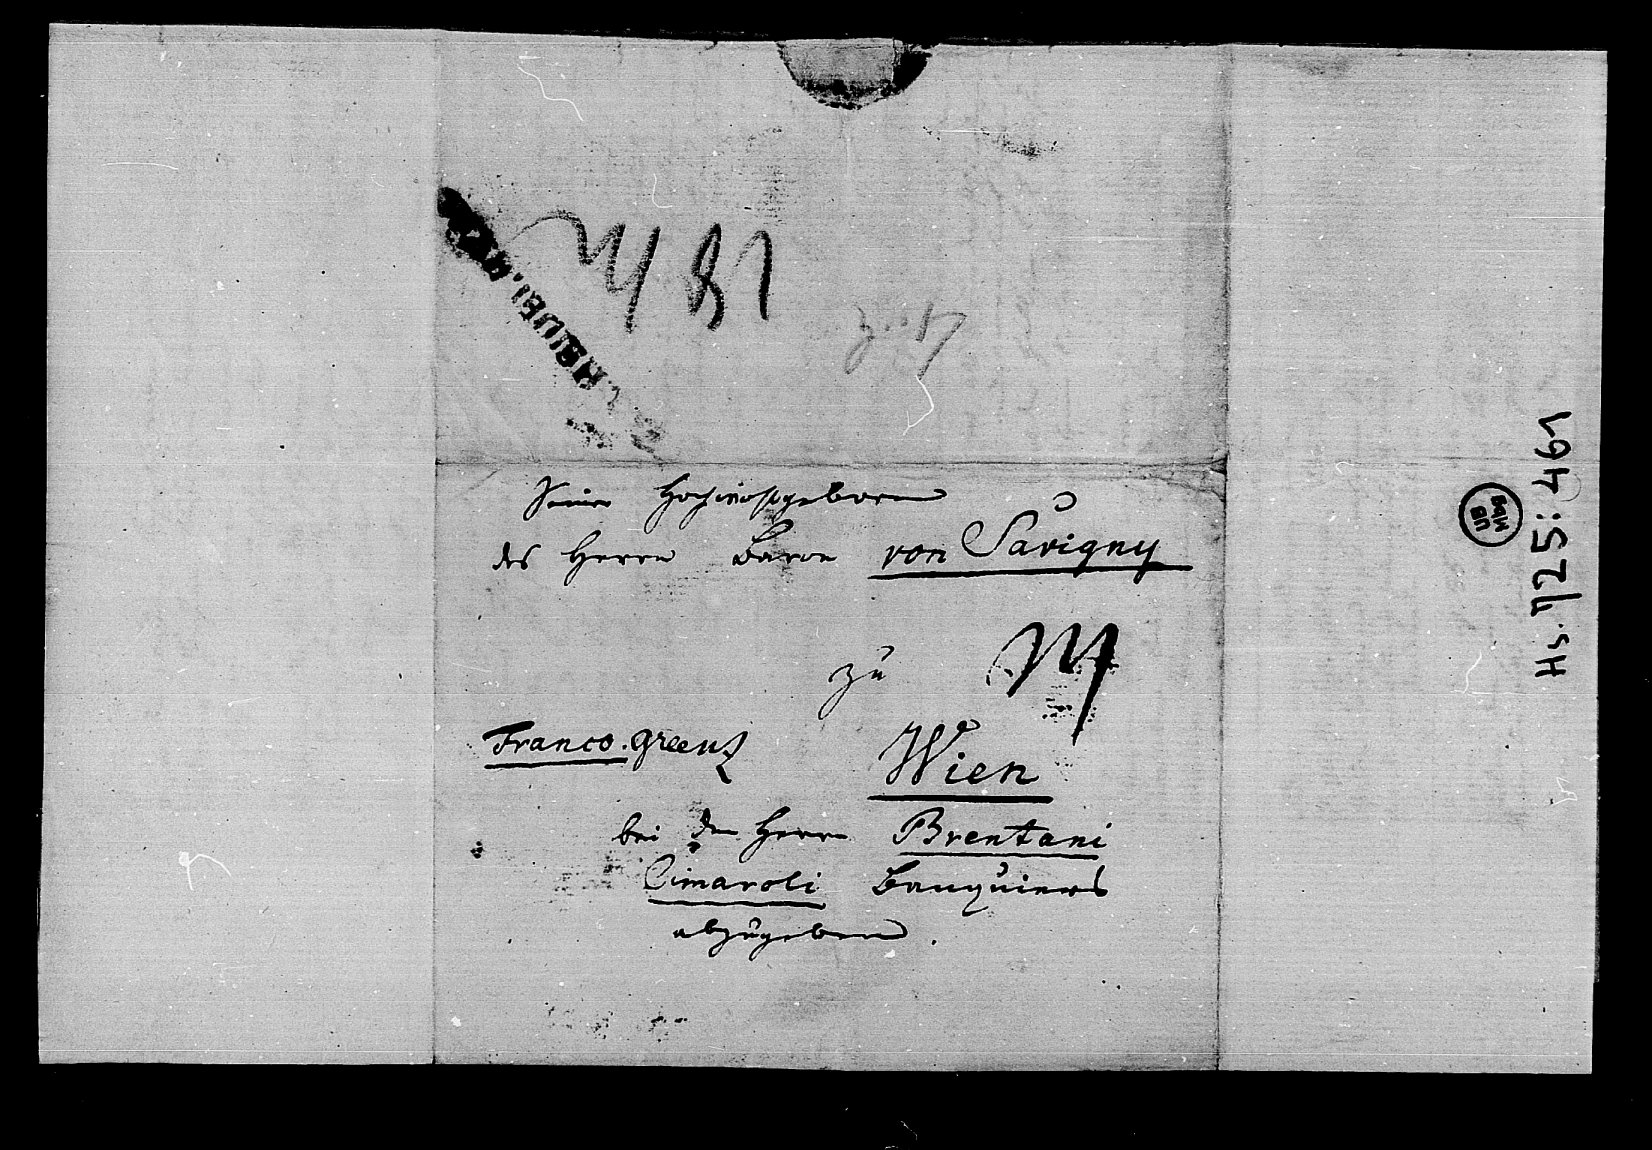 R. LANDSHUT.
Seiner Hochwohlgeboren
des Herrn Baron von Savigny
zu
Franco. greenz
Wien
bei den Herrn Brentani
Cimaroli Banquiers
abzugeben.
Hs. 725:461
UB
Mbg